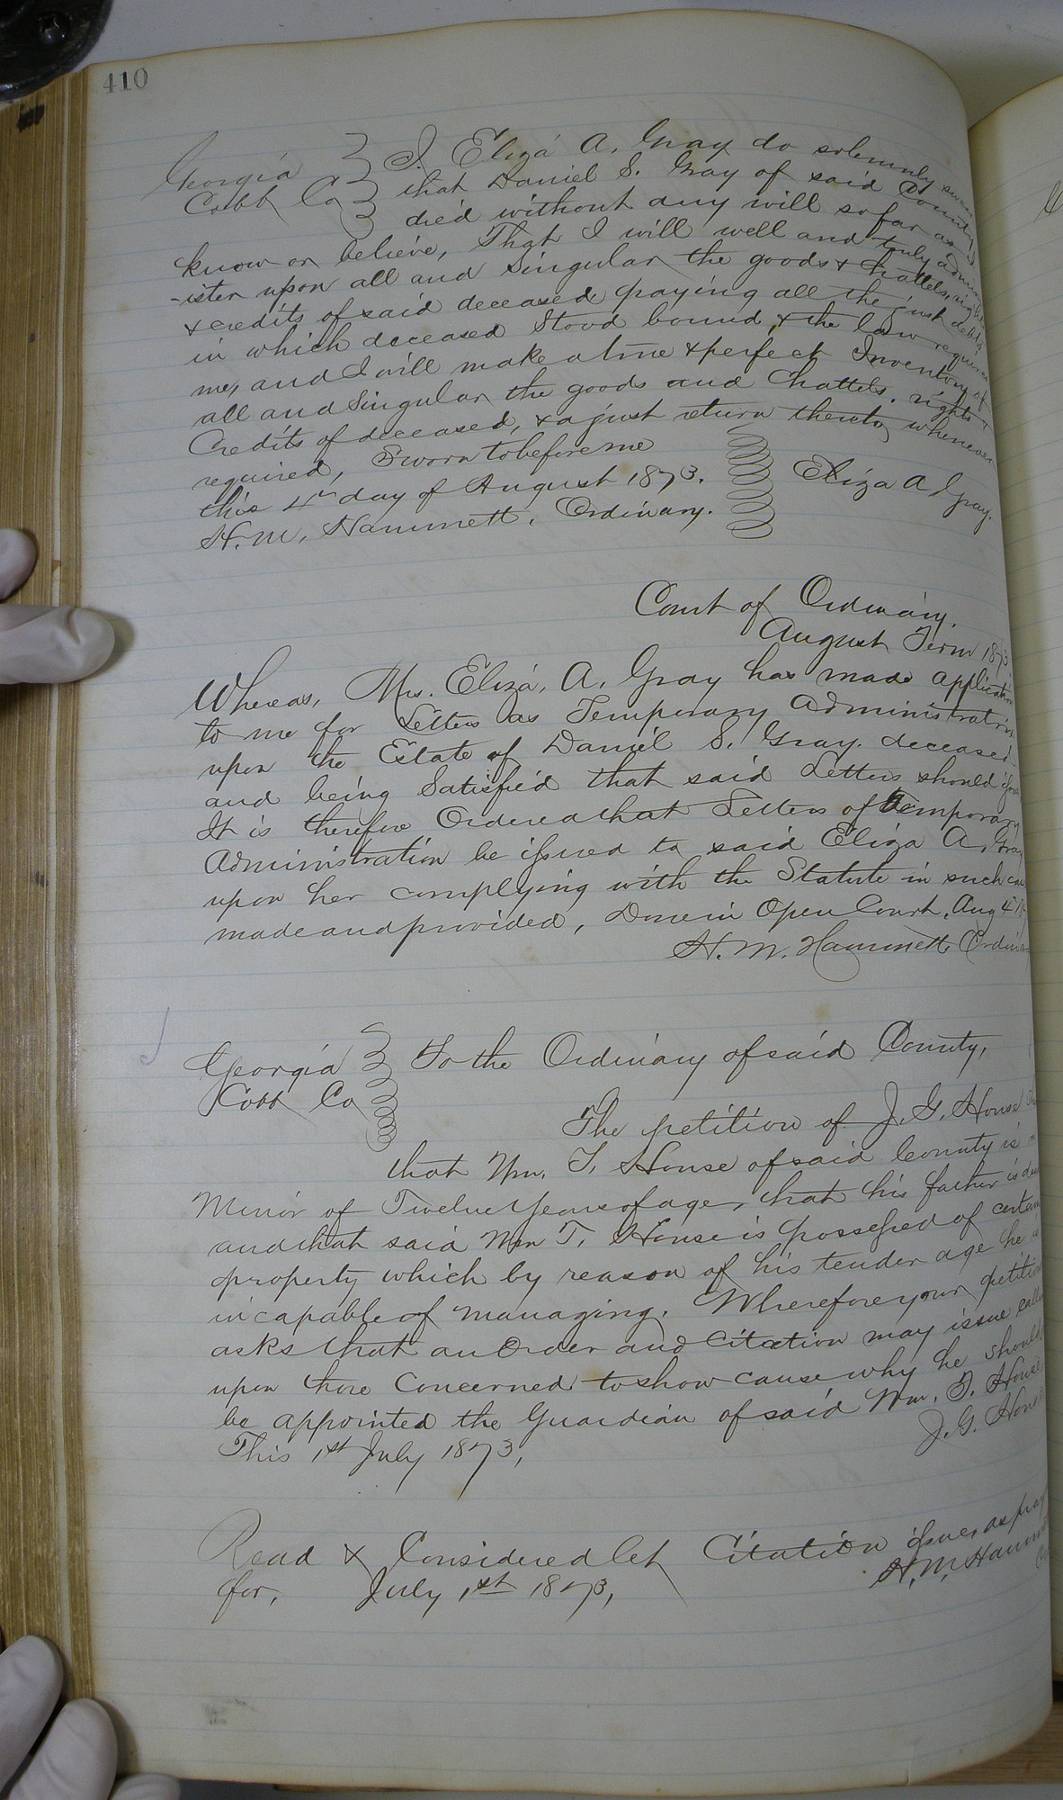 410
Georgia } I, Eliza A. Gray do solemnly swear
Cobb Co } that Daniel S. Gray of said County
died without any will so far as I
know or believe, That I will well and truly admin
-ister upon all and Singular the goods & chattels, rights
& credits of said deceased, paying all the just debts
in which deceased Stood bound, & the law requires
me, and I will make a true & perfect Inventory of
all and Singular the goods and Chattels, rights &
Credits of deceased, & a just return thereto, whenever
required, Sworn to before me
this 4th day of August 1873. } Eliza A Gray.
H. M. Hammett, Ordinary.
Court of Ordinary.
August Term 1873
Whereas, Mrs. Eliza, A. Gray has made application
to me for Letters as Temporary Administratrix
upon the Estate of Daniel S. Gray. deceased
and being Satisfied that said Letters should issue
It is therefore Ordered that Letters of Temporary
Administration be issued to said Eliza A. Gray
upon her complying with the Statute in such case
made and provided, Done in Open Court, Aug 4
H. M. Hammett, Ordinary
Georgia } To the Ordinary of said County,
Cobb Co }
The petition of J. G. House
that Wm. T. House of said County is
Minor of Twelve years of age, that his father is
and that said Wm T. House is possessed of certain
property which by reason of his tender age he is
incapable of managing. Wherefore your petition
asks that an Order and Citation may issue calling
upon those Concerned to show cause why he should
be appointed the Guardian of said Wm. T. House
This 1st July 1873, J. G. House
Read & Considered let Citation issue as pray
for, July 1st 1873, H. M. Hammett